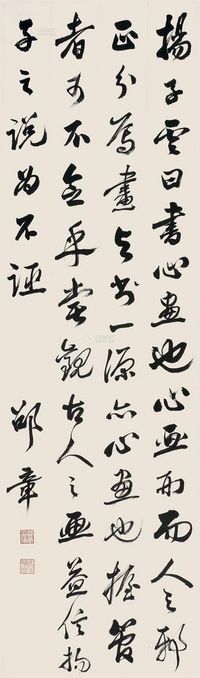 揚子雲曰書心畫也心画形而人之邪
正分焉畫與書一源亦心畫也握管
者可不念乎嘗觀古人之画益信揚
子之説為不誣
邵章